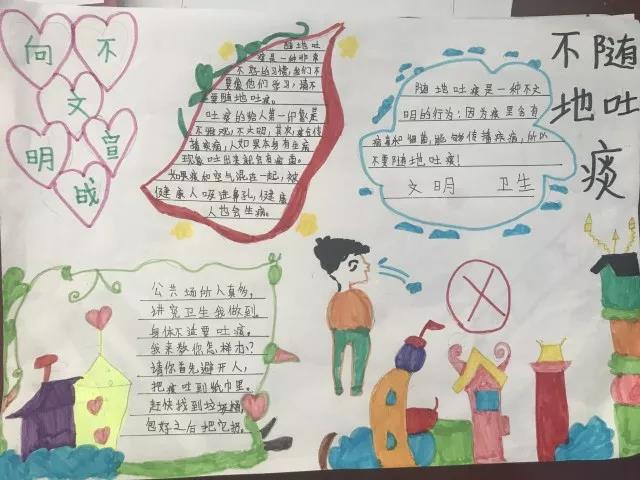 向不
文
明宣
战
随地吐
痰是一种非常
不好的习惯,我们不
要像他们学习,请不
要随地吐痰。
吐痰的给人第一印象是
不雅观,不文明,其次,痰会传
播疾病,人如果本身有生病
现象吐出来就会有病菌。
如果痰和空气混在一起,被
健康人吸进鼻孔,健康
人也会生病。
随地吐痰是一种不文
明的行为:因为痰里含有
病毒和细菌,能够传播疾病,所以
不要随地吐痰!
文明 卫生
不随地吐痰
公共场所人真多,
讲究卫生我做到。
身体不适要吐痰。
我来教你怎样办?
请你首先避开人,
把痰吐到纸巾里。
赶快找到垃圾桶,
包好之后把它扔。